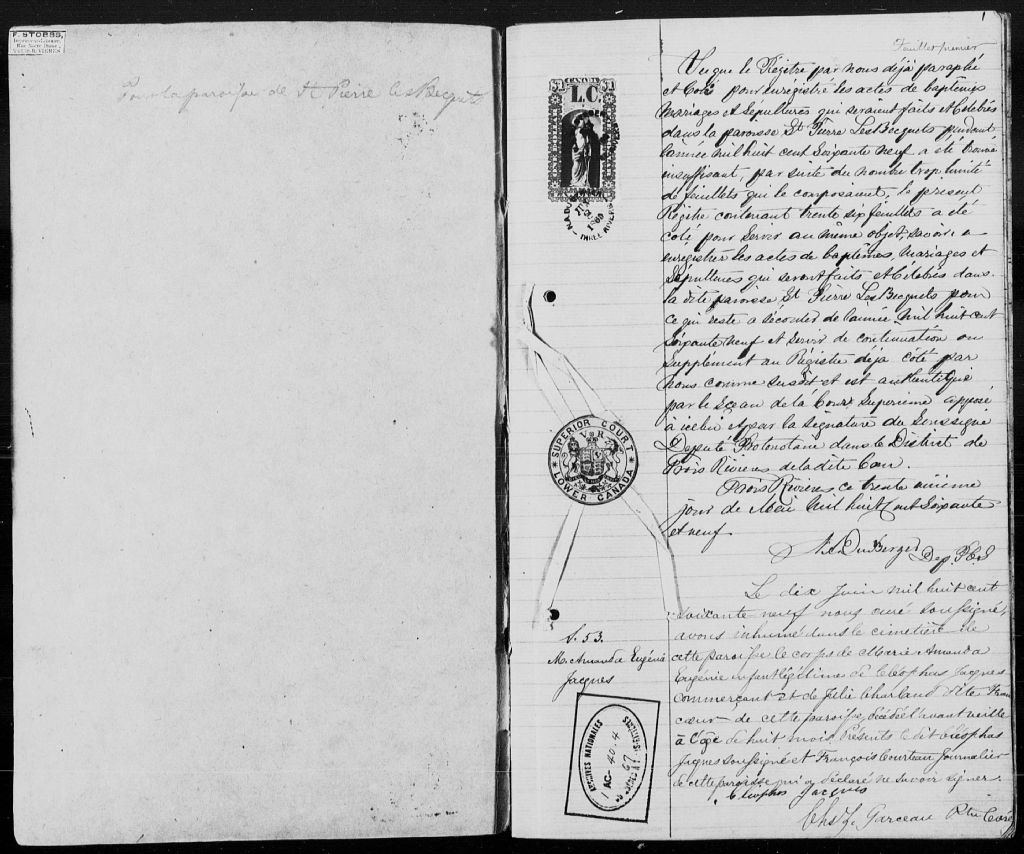 F. STOBBS,
Rue Notre Dame,
Pour la paroisse de St Pierre les Becquets
1
Feuillet premier
L.C.
THREE RIVERS
Vu que le Régistre par nous déjà paraphé
et coté pour enrégistré les actes de baptêmes
mariages et sépultures qui seraient faits et célébrés
dans la paroisse St Pierre Les Becquets pendant
l'année mil huit cent soixante neuf a été trouvé
insuffisant, par suite du nombre trop limité
de feuillets qui le composaient, le présent
Régitre contenant trente six feuillets a été
coté pour servir au même objet, savoir: a
enrégistrer les actes de baptêmes, mariages et
sépultures qui seront faits et célébrés dans
la dite paroisse St Pierre Les Becquets pour
ce qui reste a s'écouler de l'année mil huit cent
soixante neuf et servir de continuation ou
supplément au Régistre déja côté par
nous comme susdit et est authentiqué
par le sceau de la Cour Supérieure apposé
à icelui et par la signature du Soussigné
Député Protonotaire dans le District de
Trois Rivières de la dite Cour.
Trois Rivières ce trente unième
jour de Mai mil huit cent soixante
et neuf
Dep. P.C.S
SUPERIOR COURT
V R
LOWER CANADA
S. 53.
M. Amanda Eugénie
Jacques
Le dix Juin mil huit cent
soixante neuf nous curé soussigné,
avons inhumé dans le cimetière de
cette paroisse le corps de Marie Amanda
Eugénie enfant légitime de Cléophas Jacques
commerçant et de Julie Charland dite Fran
coeur de cette paroisse, décédée l'avant veille
à l'age de huit mois. Présents le dit Cléophas
Jacques soussigné et François Courteau Journalier
de cette paroisse qui a déclaré ne savoir signer.
Cleophas Jacques
Chs Z. Garceau Ptre Curé
ARCHIVES NATIONALES
1 AC- 40.4
67